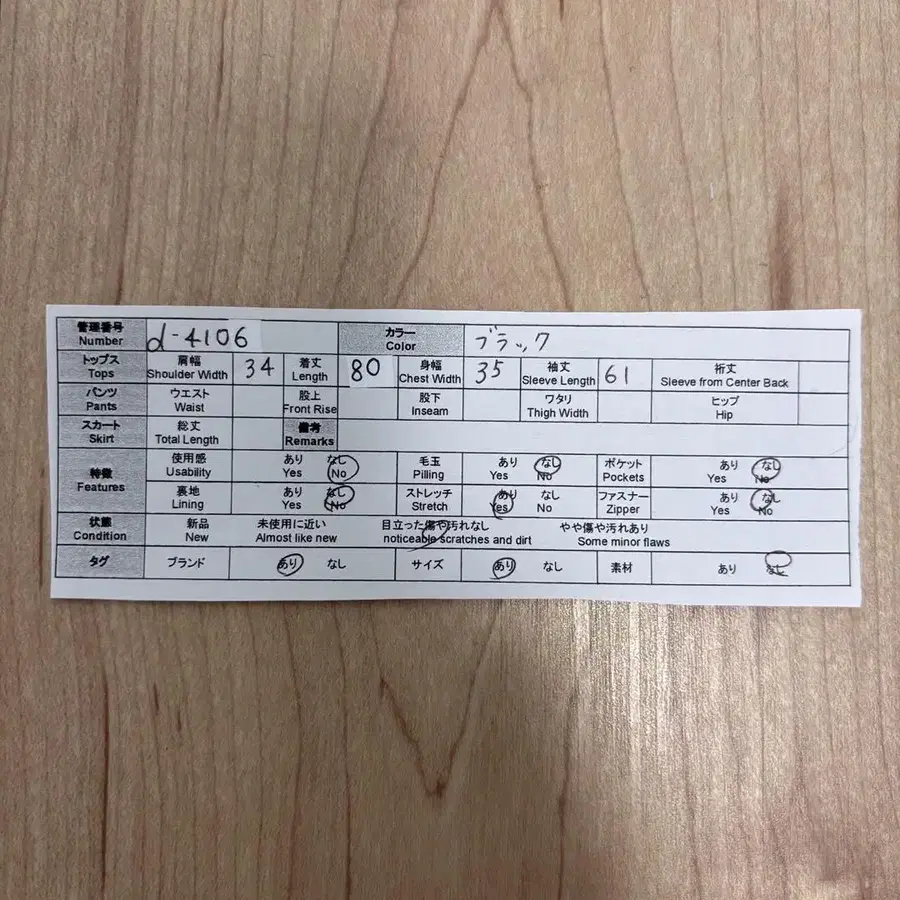 管理番号 Number d-4106 カラー Color ブラック
トップス Tops 肩幅 Shoulder Width 34 着丈 Length 80 身幅 Chest Width 35 袖丈 Sleeve Length 61 裄丈 Sleeve from Center Back
パンツ Pants ウエスト Waist 股上 Front Rise 股下 Inseam ワタリ Thigh Width ヒップ Hip
スカート Skirt 総丈 Total Length 備考 Remarks
特徴 Features 使用感 Usability あり Yes なし No 毛玉 Pilling あり Yes なし No ポケット Pockets あり Yes なし No
裏地 Lining あり Yes なし No ストレッチ Stretch あり Yes なし No ファスナー Zipper あり Yes なし No
状態 Condition 新品 New 未使用に近い Almost like new 目立った傷や汚れなし noticeable scratches and dirt やや傷や汚れあり Some minor flaws
タグ ブランド あり なし サイズ あり なし 素材 あり なし